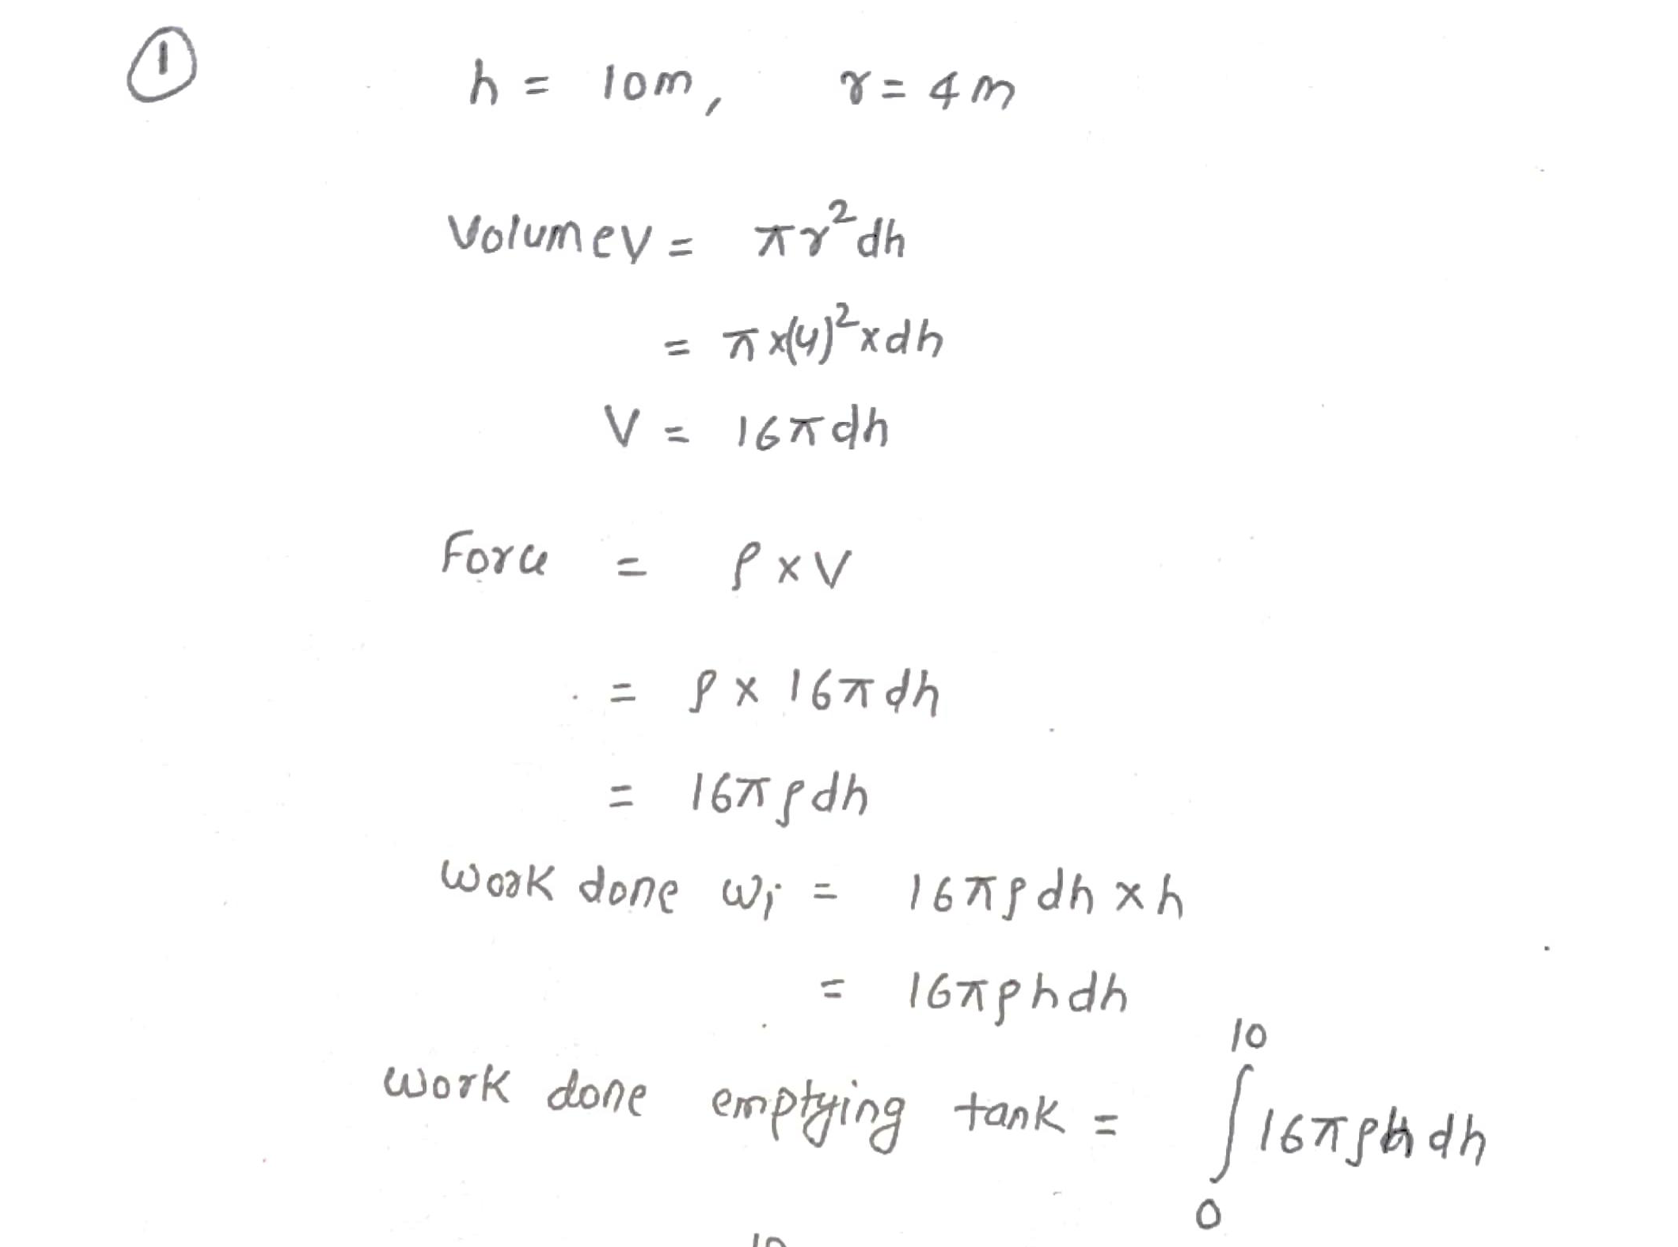 ① h = 10m, r = 4m
Volume V = πr²dh
= π×(4)²×dh
V = 16πdh
Force = ρ×V
= ρ × 16πdh
= 16πρdh
Work done Wi = 16πρdh × h
= 16πρhdh
10
Work done emptying tank = ∫16πρh dh
0
10